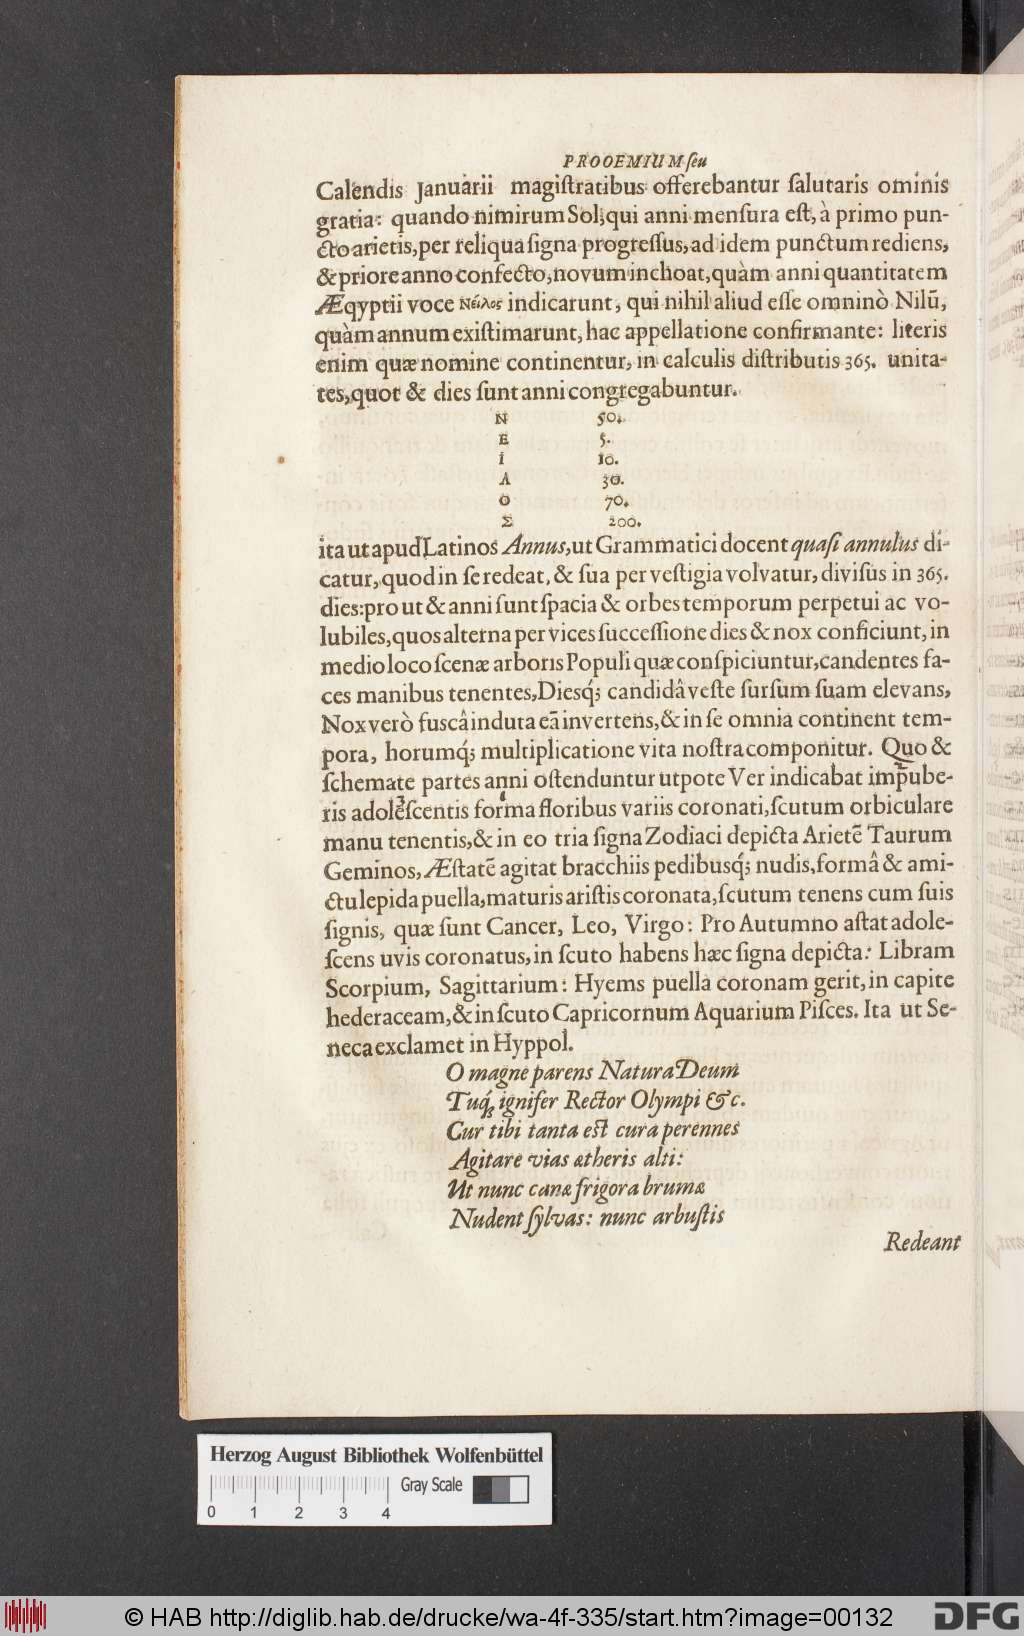 PROOEMIUM ſeu
Calendis Januarii magiſtratibus offerebantur ſalutaris ominis
gratia: quando nimirum Sol, qui anni menſura eſt, à primo pun-
cto arietis, per reliqua ſigna progreſſus, ad idem punctum rediens,
& priore anno confecto, novum inchoat, quàm anni quantitatem
Æqyptii voce Νέιλος indicarunt, qui nihil aliud eſſe omninò Nilū,
quàm annum exiſtimarunt, hac appellatione confirmante: literis
enim quæ nomine continentur, in calculis diſtributis 365. unita-
tes, quot & dies ſunt anni congregabuntur.
Ν 50.
Ε 5.
Ι 10.
Λ 30.
Ο 70.
Σ 200.
ita ut apud Latinos Annus, ut Grammatici docent quaſi annulus di-
catur, quod in ſe redeat, & ſua per veſtigia volvatur, diviſus in 365.
dies: pro ut & anni ſunt ſpacia & orbes temporum perpetui ac vo-
lubiles, quos alterna per vices ſucceſſione dies & nox conficiunt, in
medio loco ſcenæ arboris Populi quæ conſpiciuntur, candentes fa-
ces manibus tenentes, Diesq́; candidâ veſte ſurſum ſuam elevans,
Nox verò fuscâ induta eā invertens, & in ſe omnia continent tem-
pora, horumq́; multiplicatione vita noſtra componitur. Quo &
ſchemate partes anni oſtenduntur utpote Ver indicabat impube-
ris adoleſcentis forma floribus variis coronati, ſcutum orbiculare
manu tenentis, & in eo tria ſigna Zodiaci depicta Arietē Taurum
Geminos, Æſtatē agitat bracchiis pedibusq́; nudis, formâ & ami-
ctu lepida puella, maturis ariſtis coronata, ſcutum tenens cum ſuis
ſignis, quæ ſunt Cancer, Leo, Virgo: Pro Autumno aſtat adole-
ſcens uvis coronatus, in ſcuto habens hæc ſigna depicta: Libram
Scorpium, Sagittarium: Hyems puella coronam gerit, in capite
hederaceam, & in ſcuto Capricornum Aquarium Piſces. Ita ut Se-
neca exclamet in Hyppol.
O magne parens Natura Deum
Tuq́; ignifer Rector Olympi &c.
Cur tibi tanta eſt cura perennes
Agitare vias ætheris alti:
Ut nunc canæ frigora brumæ
Nudent ſylvas: nunc arbuſtis
Redeant
Herzog August Bibliothek Wolfenbüttel
Gray Scale
0 1 2 3 4
© HAB http://diglib.hab.de/drucke/wa-4f-335/start.htm?image=00132
DFG